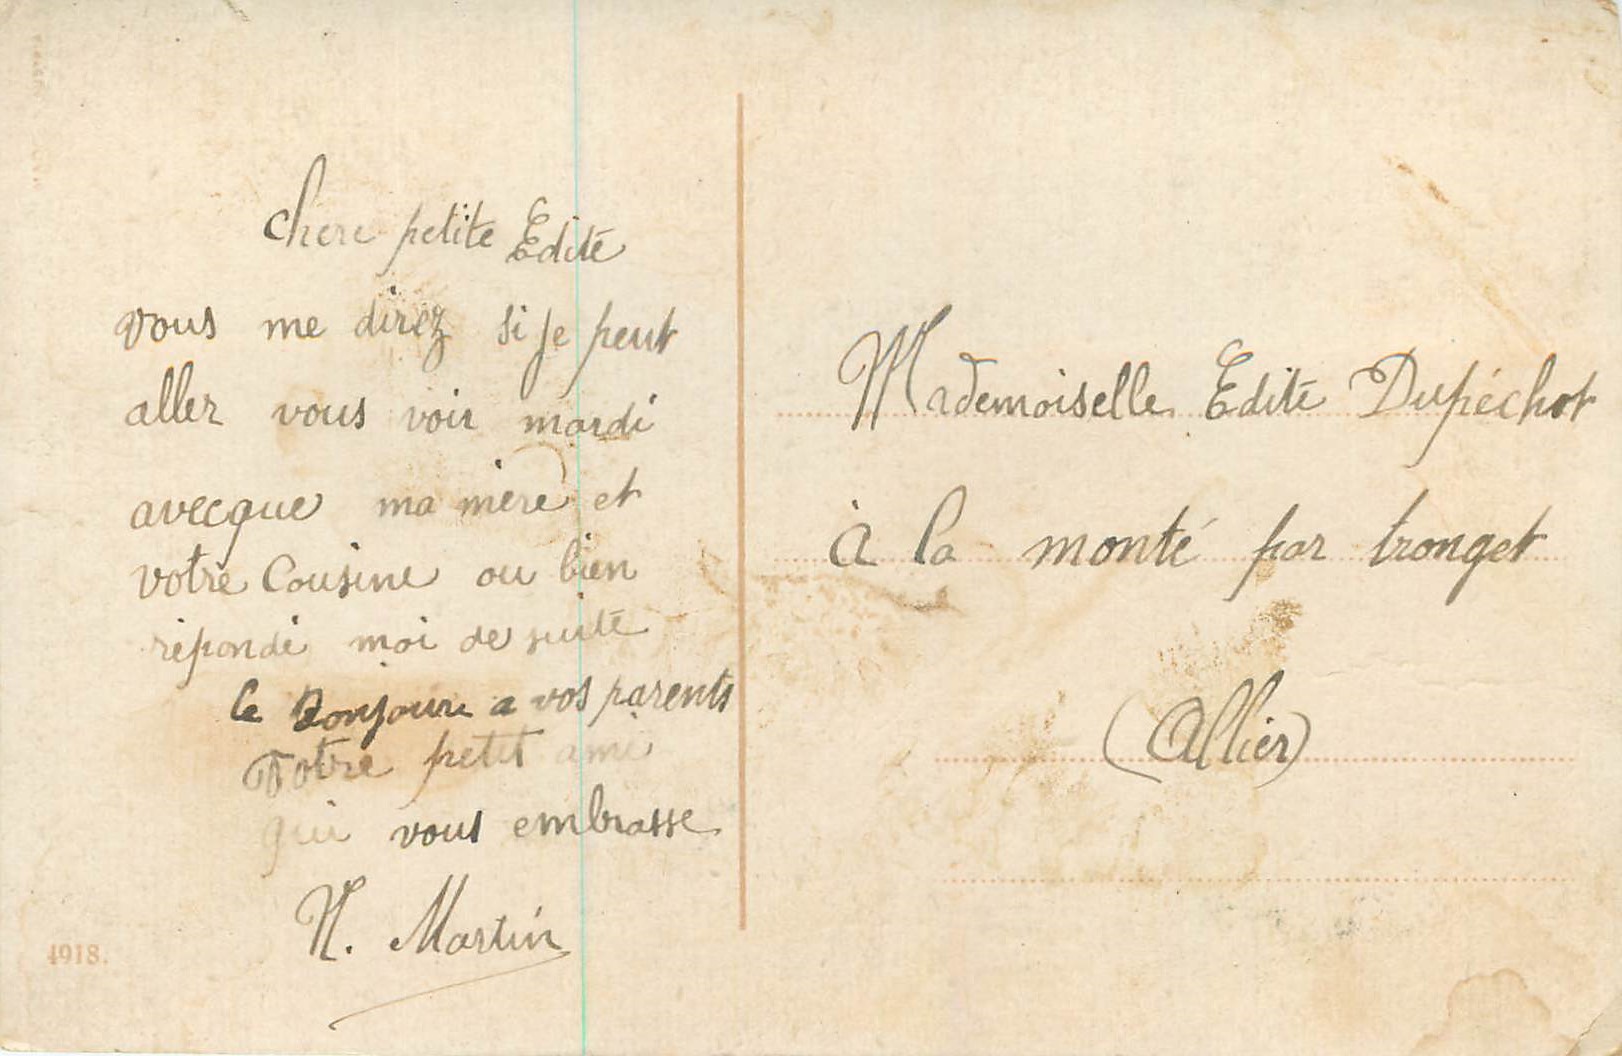 chere petite Edite
vous me direz si je peut
aller vous voir mardi
avecque ma mere et
votre Cousine ou bien
répondé moi de suite
le Bonjoure a vos parents
Votre petit ami
qui vous embrasse
N. Martin
4918.
Mademoiselle Edite Dupéchot
à la monté par tronget
(Allier)